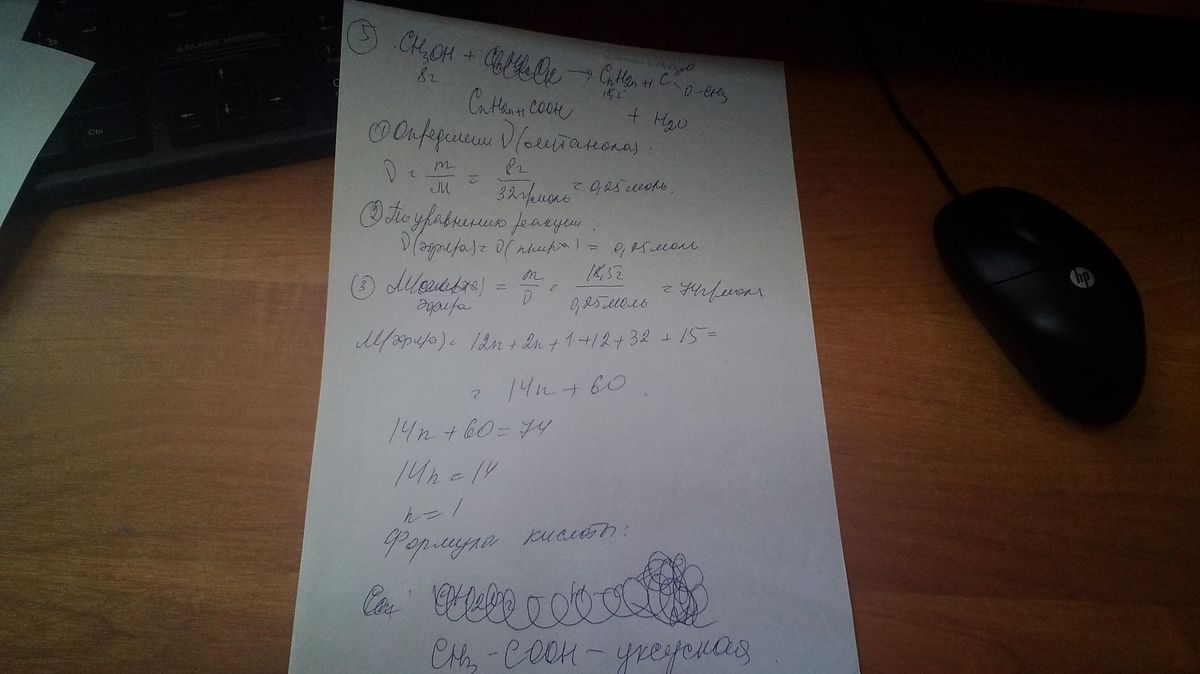 5
CH3OH + → CnH2n+1 C=O O-CH3
8г 18,5
CnH2n+1COOH + H2O
① Определим ν(метанола):
ν = m/M = 8г/32г/моль = 0,25 моль.
② По уравнению реакции:
ν(эфира) = ν(спирта) = 0,25 моль
③ M(эфира) = m/ν = 18,5г/0,25 моль = 74г/моль
M(эфира) = 12n + 2n + 1 + 12 + 32 + 15 =
= 14n + 60.
14n + 60 = 74
14n = 14
n = 1
Формула кислоты:
CH3 - COOH - уксусная
Ctrl
hp